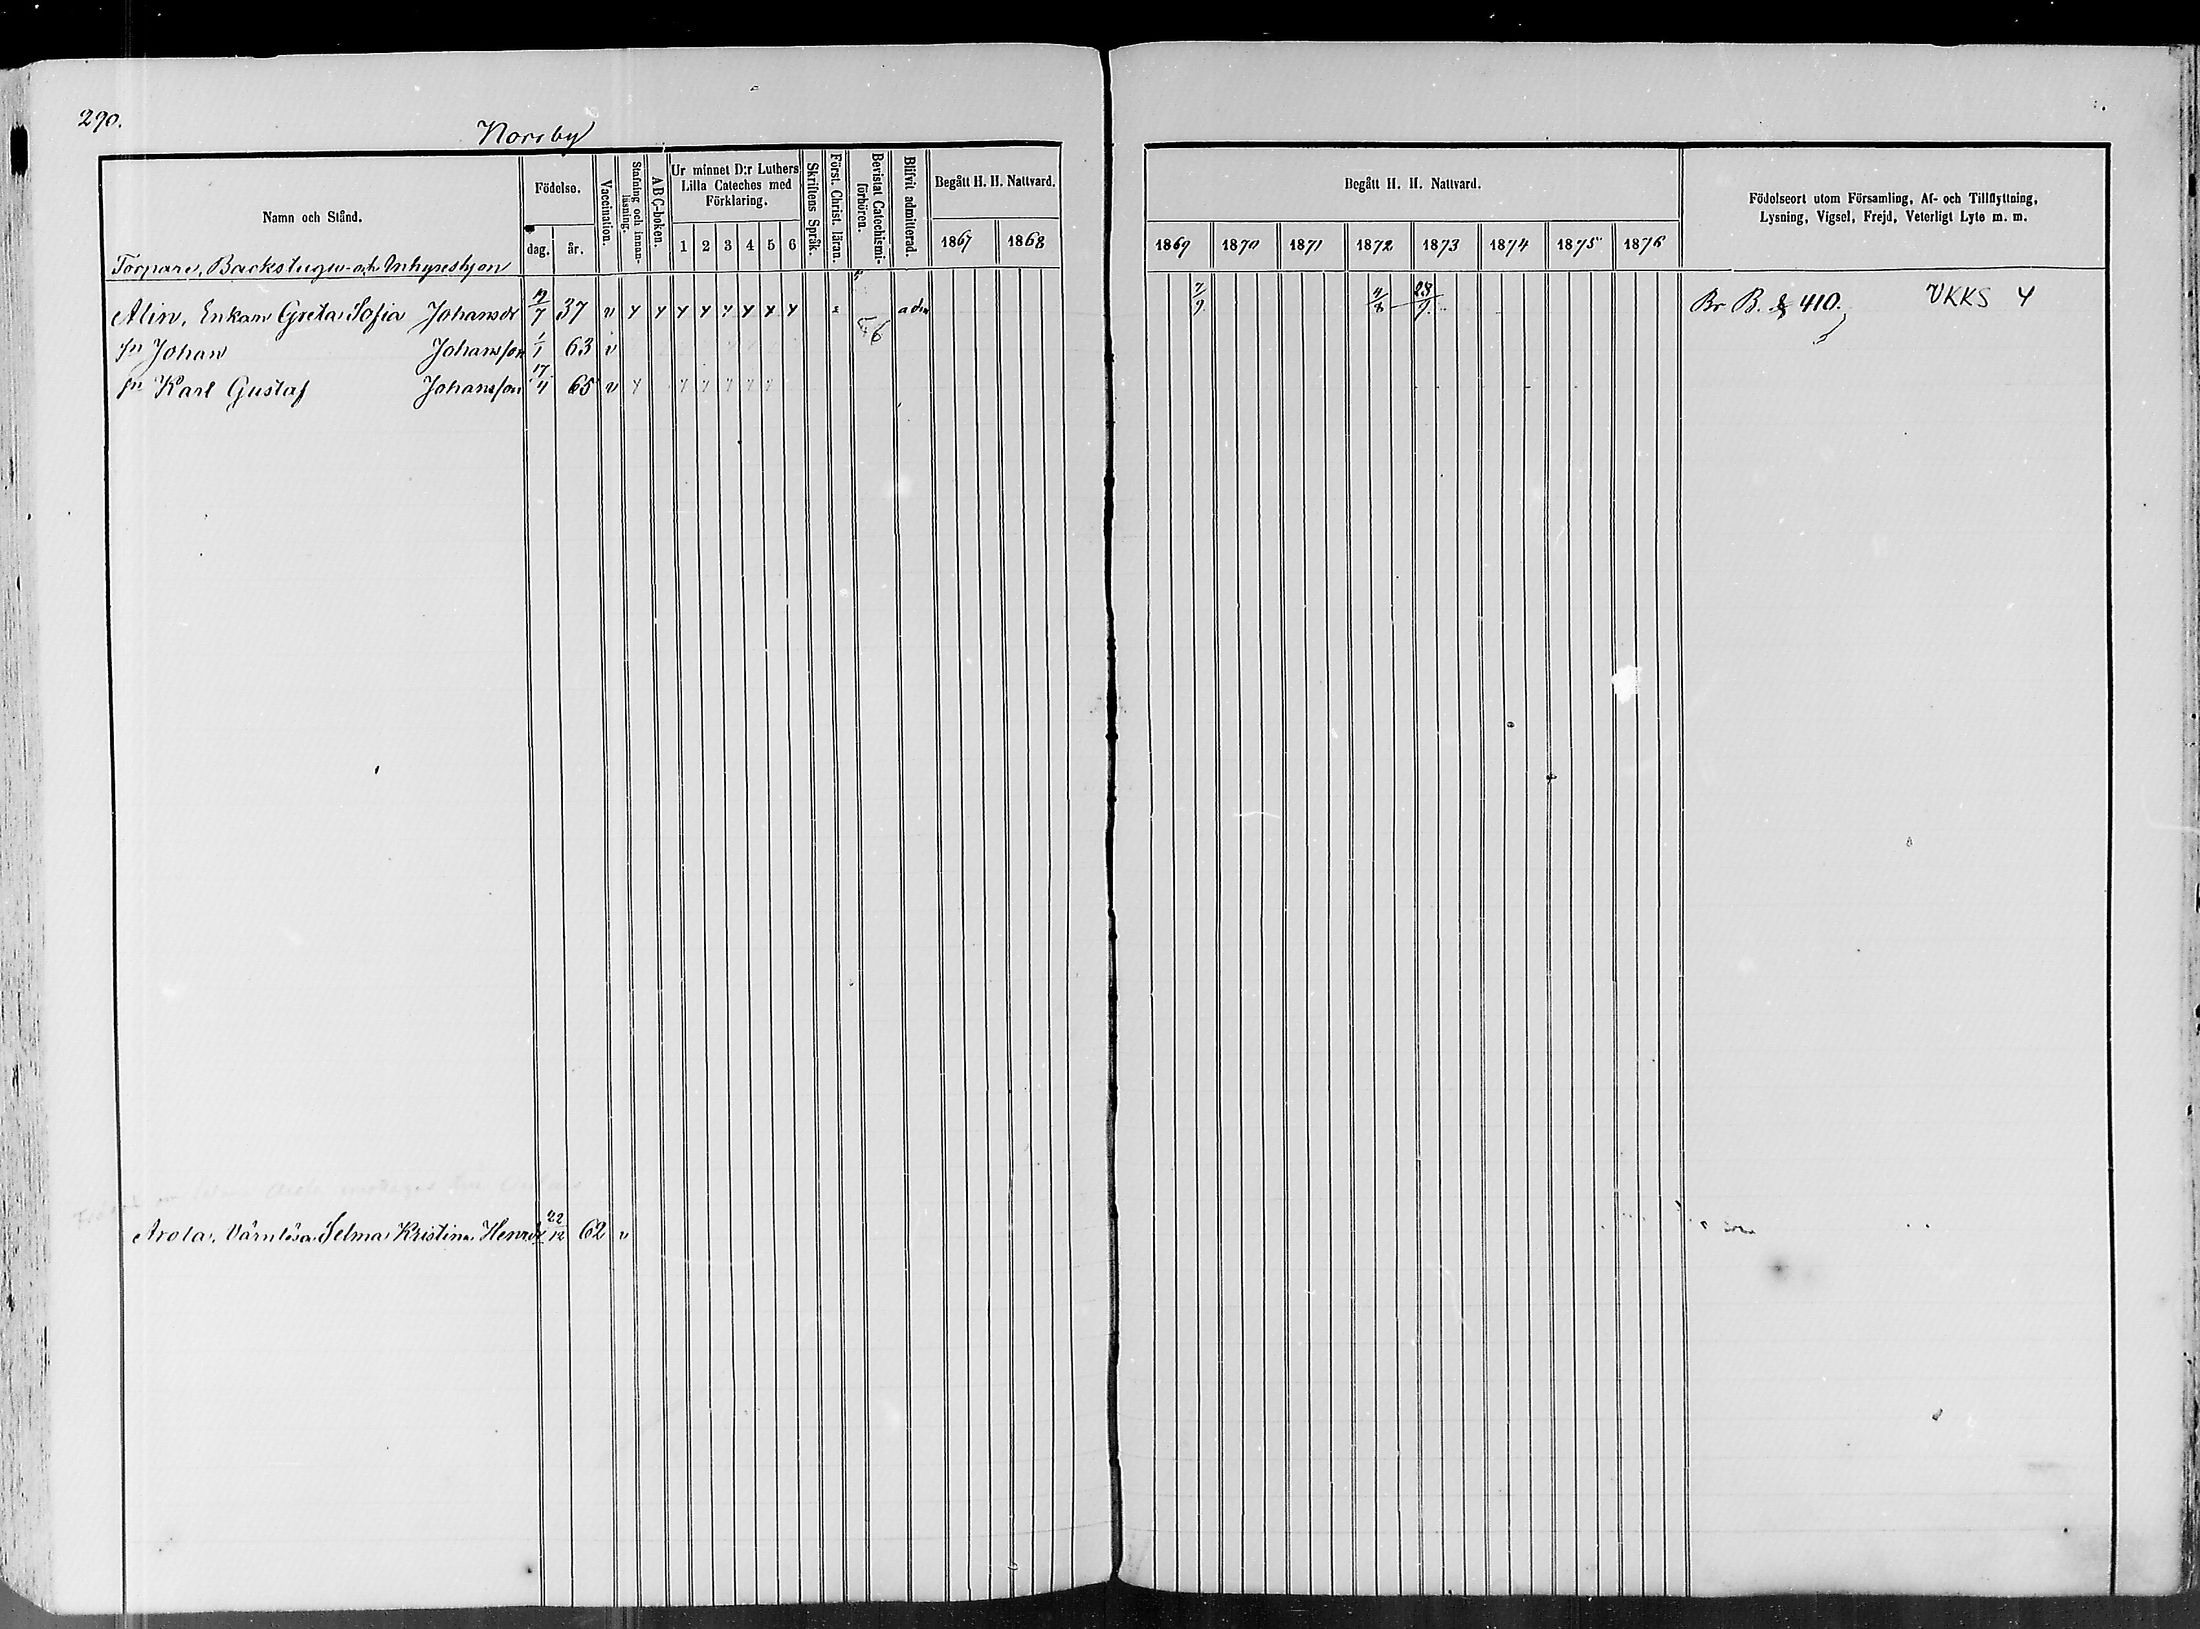 290.
Norrby
Namn och Stånd.
Födelse.
dag. år.
Vaccination.
Stafning och innan-läsning.
A B C-boken.
Ur minnet D:r Luthers Lilla Cateches med Förklaring.
1 2 3 4 5 6
Skriftens Språk.
Först. Christ. lären.
Bevistat Catechismi-förhören.
Blifvit admitterad.
Begått H. H. Nattvard.
1867 1868
Begått H. H. Nattvard.
1869 1870 1871 1872 1873 1874 1875 1876
Födelseort utom Församling, Af- och Tillflyttning,
Lysning, Vigsel, Frejd, Veterligt Lyte m. m.
Torpare, Backstugu- och Inhyseshjon
Alin, Enkan Greta Sofia Johansdr 12/7 37 v adm 7/9 4/8 28/9 Br B. 410. VKKS 4
sn Johan Johansson 1/1 63 v
sn Karl Gustaf Johansson 17/4 65 v
Arola, Värnlösa Selma Kristina Henrdr 22/12 62 v